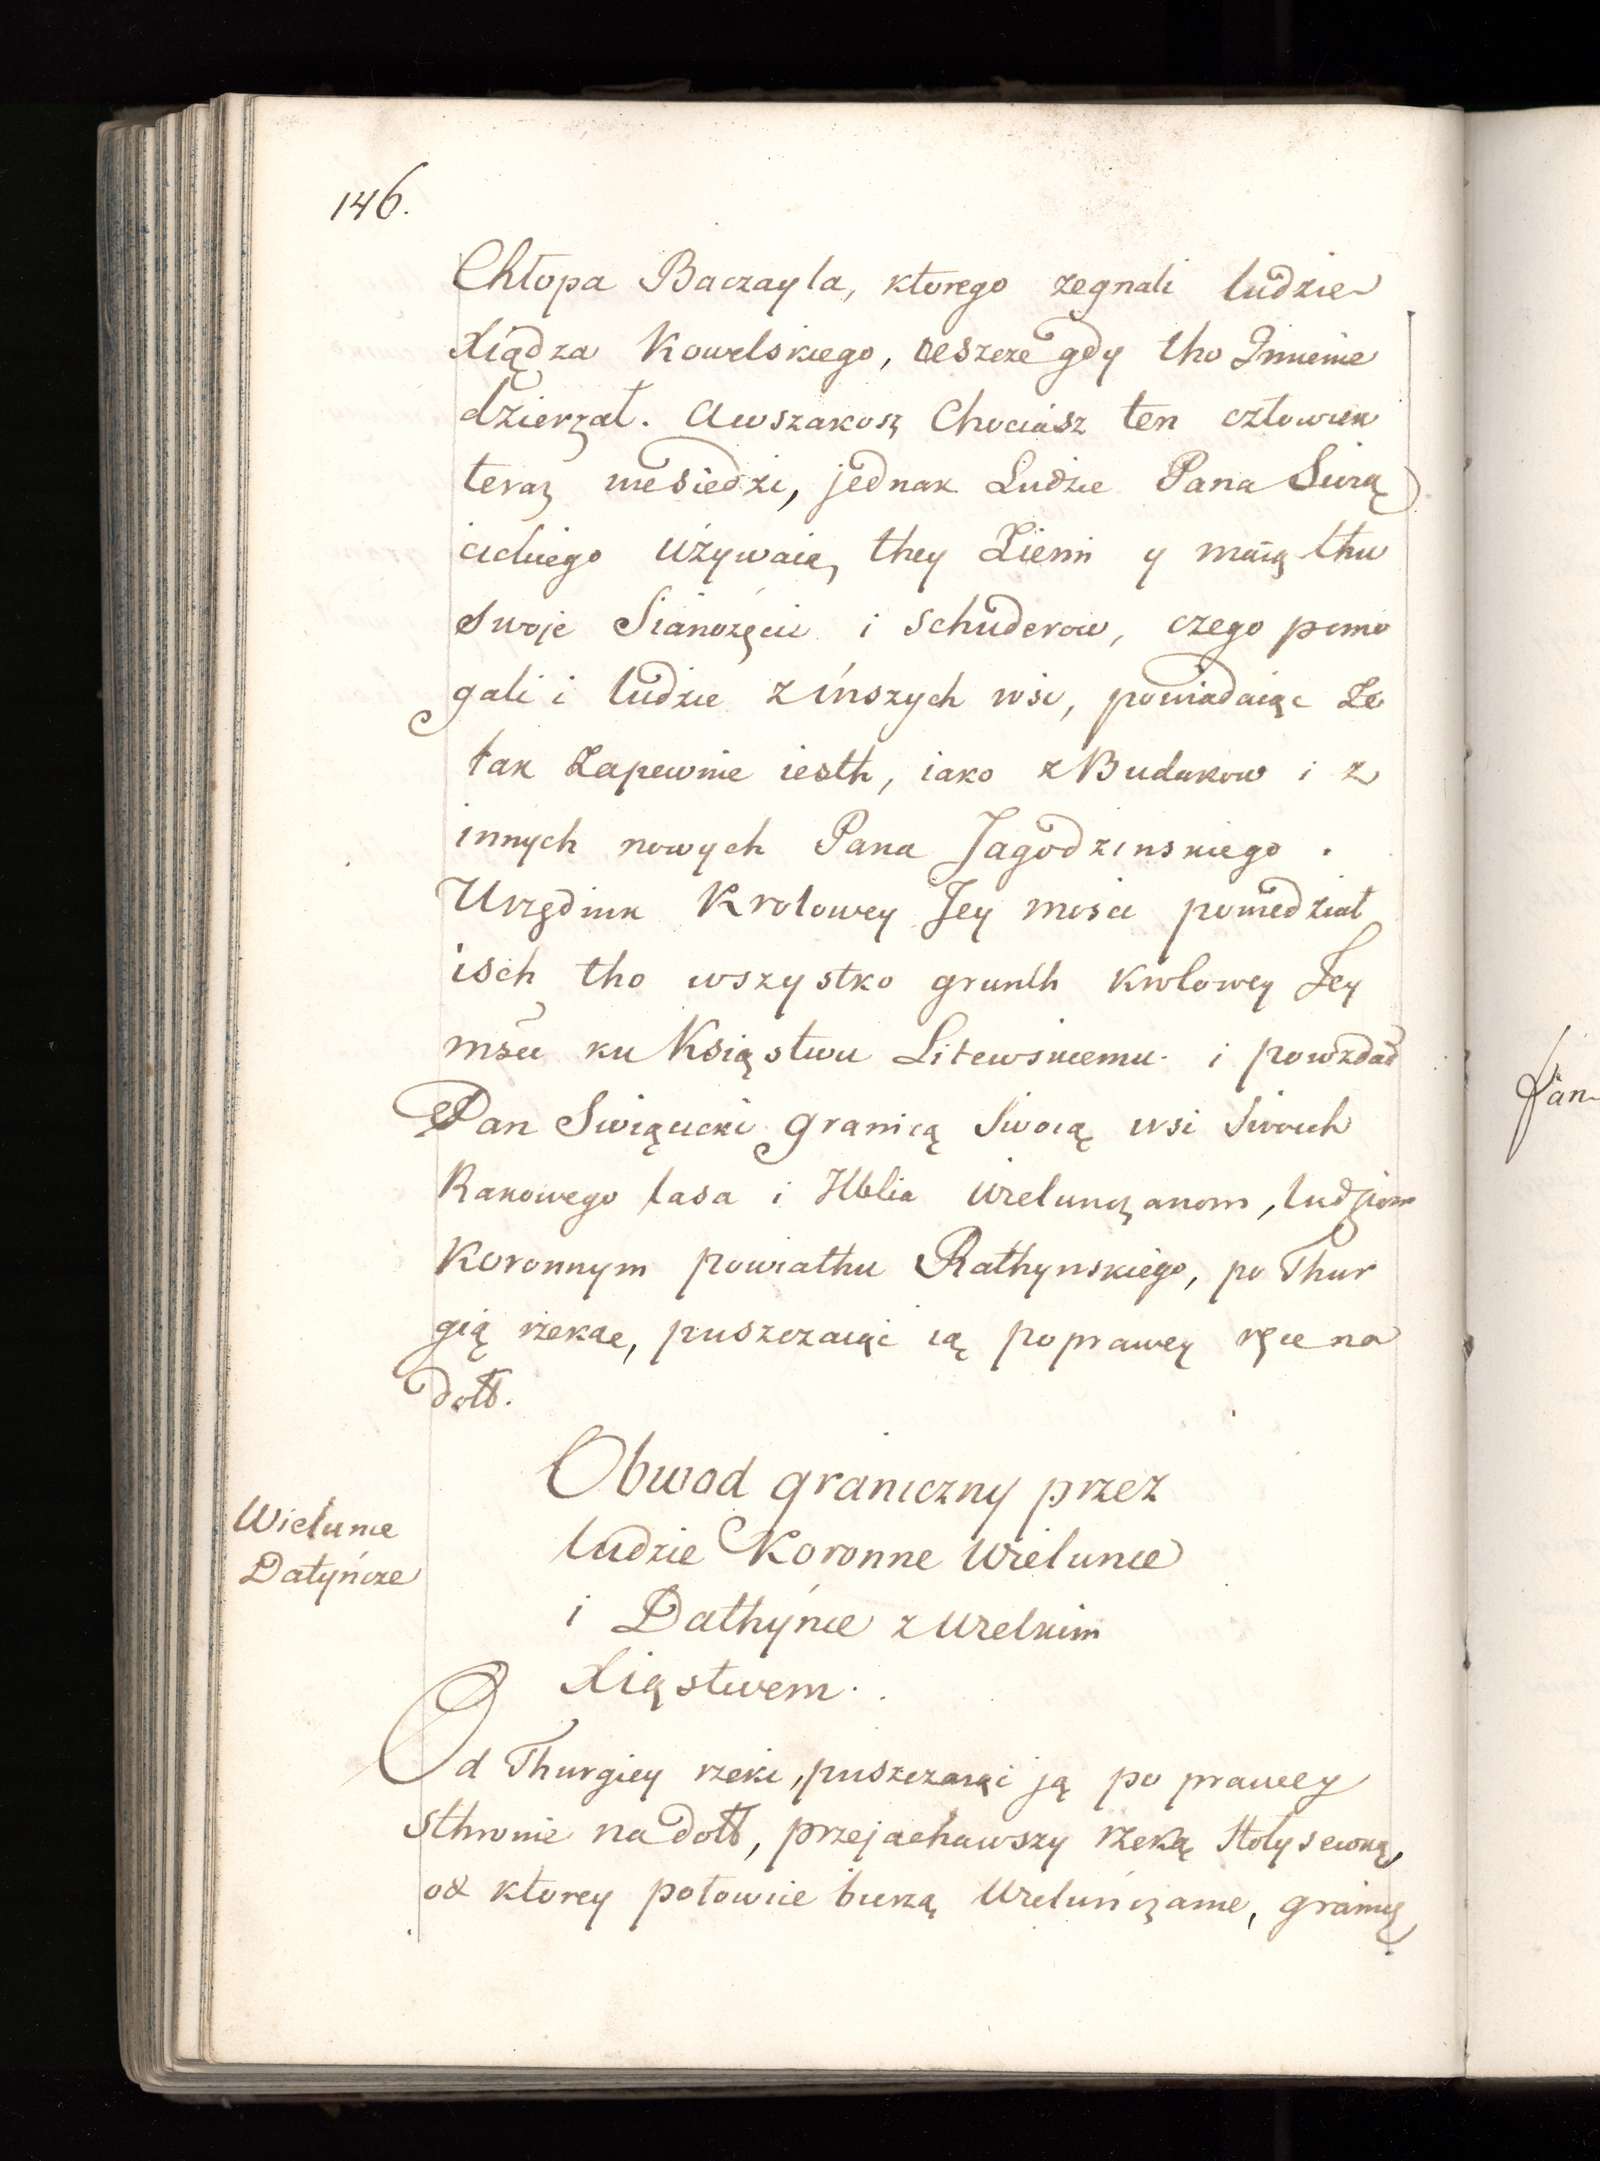 146.
Chłopa Baczayla, ktorego zegnali ludzie
Xiądza Kowelskiego, ieszcze gdy tho Imienie
dzierzał. Awszakosz Chociasz ten człowiek
teraz niesiedzi, jednak Ludzie Pana Swią
cickiego używaią they Ziemi y maią thu
swoje Sianożęcie i schuderow, czego pomo
gali i ludzie z inszych wsi, powiadaiąc że
tak zapewnie iesth, iako z Budukow i z
innych nowych Pana Jagodzinskiego.
Urzędnik Krolowey Jey mosci powiedział
isch tho wszystko grunth Krolowey Jey
msci ku Księstwu Litewskiemu. i powzdał
Pan Swiącicki granicą swoią wsi swoich
Rakowego lasa i Hblia Wielunczanom, ludziom
Koronnym powiathu Rathynskiego, po Thur
gią rzekae, puszczaiąc ią poprawey ręce na
dołł.
Obwod graniczny przez
ludzie Koronne Wielunce
i Dathyńce z Wielkim
Xięstwem.
Wielunce
Datyńcze
Od Thurgiey rzeki, puszczaiąc ją po prawey
sthronie na dołł, przejachawszy rzeką Hołysewką,
od ktorey połowice bierzą Wieluńczanie, granicę